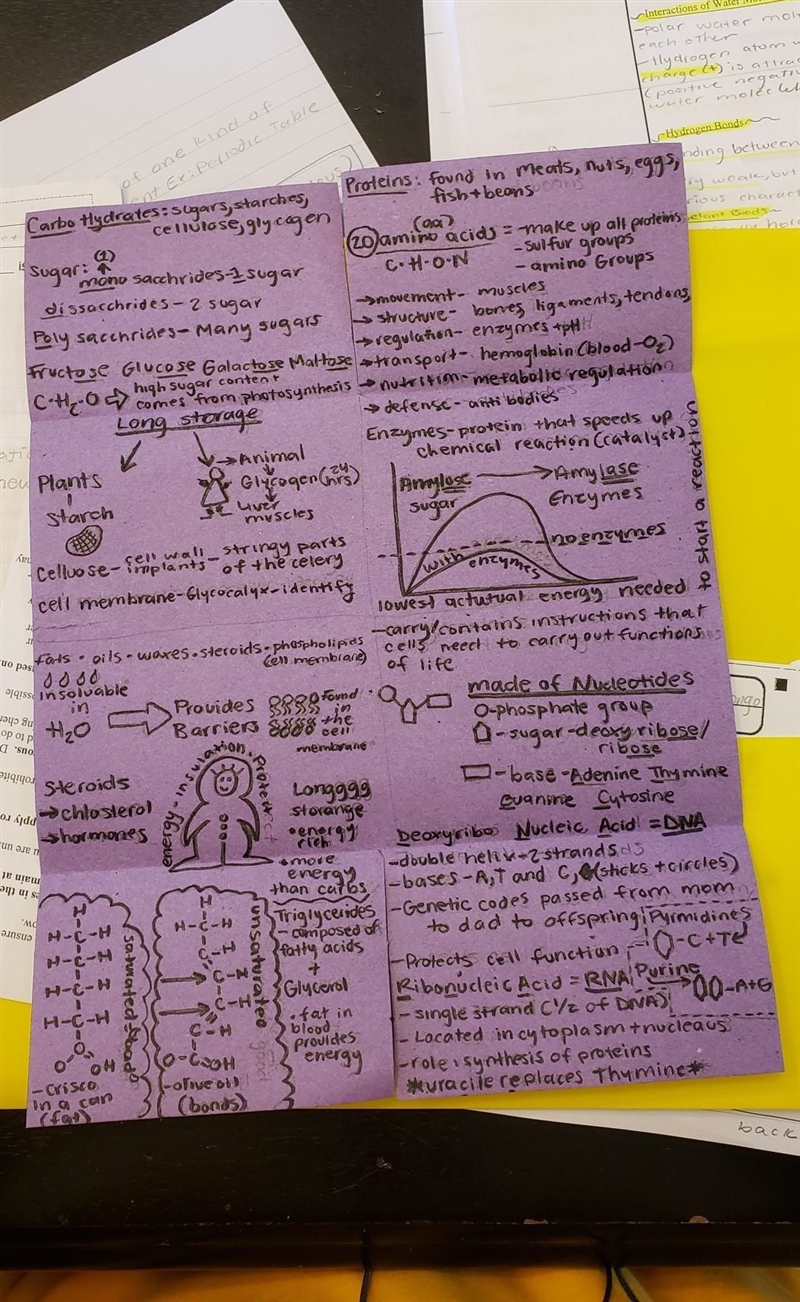 Interactions of Water
-polar water
each other
-Hydrogen atom
charge (+) is
(positive
water
Hydrogen Bonds
of one kind of
Ex: Periodic Table
Carbo Hydrates: sugars, starches,
cellulose, glycogen
(1)
sugar: mono sacchrides-1 sugar
dissacchrides - 2 sugar
Poly sacchrides - Many sugars
Fructose Glucose Galactose Maltose
C·H₂·O ⇨ high sugar content
comes from photosynthesis
Long storage
Plants
starch
→ Animal
Glycogen (24 hrs)
Liver
muscles
Celluose - cell wall - stringy parts
implants of the celery
cell membrane - Glycocalyx - identify
Fats · oils · waxes · steroids · phospholipids
(cell membrane)
insolvable
in
H₂O
Provides
Barriers
found
in
the
cell
membrane
Steroids
→ chlosterol
→ hormones
energy - insulation · Protect
Longggg
storange
• energy
rich
• more
energy
than carbs
H
H-C-H
H-C-H
H-C-H
H-C-H
O OH
saturated
-crisco
in a can
(fat)
H
H-C-H
C-H
C-H
C-H
C-H
O=C OH
unsaturated
good
-olive oil
(bonds)
Triglycerides
- composed of
fatty acids
+
Glycerol
. fat in
blood
provides
energy
Proteins: found in meats, nuts, eggs,
fish + beans
(aa)
20 amino acids = -make up all proteins
C·H·O·N -sulfur groups
- amino Groups
→ movement - muscles
→ structure - bones, ligaments, tendons,
→ regulation - enzymes + pH
→ transport - hemoglobin (blood-O₂)
→ nutrition - metabolic regulation
→ defense - anti bodies
Enzymes - protein that speeds up
chemical reaction (catalyst)
Amylose → Amylase
sugar Enzymes
no enzymes
with enzymes
lowest actutual energy needed
to start a reaction
-carry/contains instructions that
cells need to carry out functions
of life
made of Nucleotides
O-phosphate group
- sugar - deoxyribose/
ribose
- base - Adenine Thymine
Guanine Cytosine
Deoxyribo Nucleic Acid = DNA
- double helix - 2 strands
- bases - A, T and C, G (sticks + circles)
- Genetic codes passed from mom
to dad to offspring
Pyrmidines
- C + T
- Protects cell function
Ribonucleic Acid = RNA
Purine
- A + G
- single strand (½ of DNA)
- Located in cytoplasm + nucleaus
- role: synthesis of proteins
*uracile replaces Thymine*
back